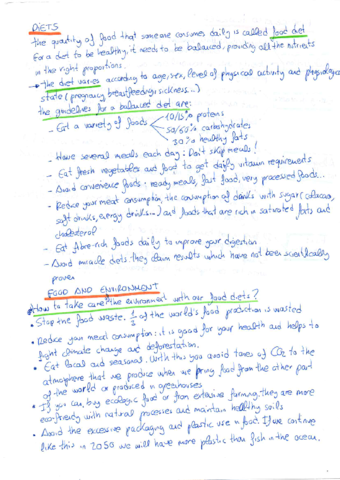 DIETS
The quantity of food that someone consumes daily is called food diet
For a diet to be healthy, it needs to be balanced, providing all the nutrients
in the right proportions
The diet varies according to age, sex, level of physical activity and physiological
state (pregnancy, breastfeeding, sickness...)
The guidelines for a balanced diet are:
10/15% proteins
- Eat a variety of foods
50/60% carbohydrates
30% healthy fats
- Have several meals each day: Don't skip meals!
- Eat fresh vegetables and food to get daily vitamin requirements
- Avoid convenience foods: ready meals, fast food, very processed foods...
- Reduce your meat consumption, the consumption of drinks with sugar (
soft drinks, energy drinks...) and foods that are rich in saturated fats and
cholesterol
- Eat fibre-rich foods daily to improve your digestion
- Avoid miracle diets they claim results which have not been scientifically
proven
FOOD AND ENVIRONMENT
How to take care the environment with our food diets?
• Stop the food waste. of the world's food production is wasted
• Reduce your meat consumption: it is good for your health and helps to
fight climate change and deforestation.
• Eat local and seasonal. With this you avoid tones of CO2 to the
atmosphere that we produce when we bring food from the other part
of the world or produced in greenhouses
• If you can, buy ecologic food or from extensive farming, they are more
eco-friendly with natural processes and maintain healthy soils
• Avoid the excessive packaging and plastic use in food. If we continue
like this in 2050 we will have more plastic than fish in the ocean.